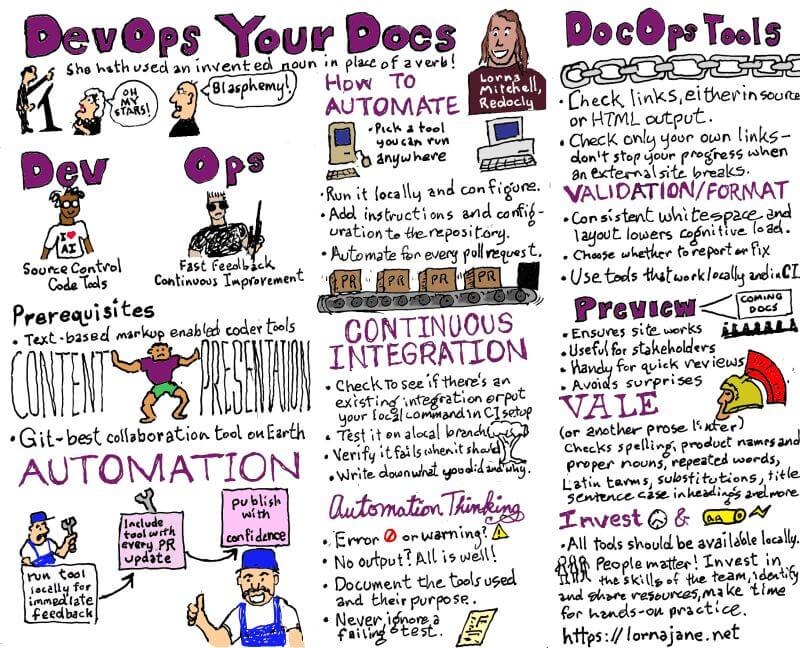 DevOps Your Docs
She hath used an invented noun in place of a verb!
OH
MY
STARS!
Blasphemy!
Lorna
Mitchell,
Redocly
Dev
Ops
I ❤ AI
Source Control
Code Tools
Fast Feedback
Continuous Improvement
Prerequisites
• Text-based markup enabled coder tools
CONTENT
PRESENTATION
• Git-best collaboration tool on Earth
AUTOMATION
run tool
locally for
immediate
feedback
Include
tool with
every PR
update
Publish
with
confidence
HOW TO
AUTOMATE
• Pick a tool
you can run
anywhere
• Run it locally and configure.
• Add instructions and config-
uration to the repository.
• Automate for every pull request.
PR
PR
PR
PR
CONTINUOUS
INTEGRATION
• Check to see if there's an
existing integration or put
your local command in CI setup
• Test it on a local branch
• Verify it fails when it should
• Write down what you did and why.
Automation Thinking
• Error or warning?
• No output? All is well!
• Document the tools used
and their purpose.
• Never ignore a
failing test.
DocOps Tools
• Check links, either in source
or HTML output.
• Check only your own links-
don't stop your progress when
an external site breaks.
VALIDATION/FORMAT
• Consistent whitespace and
layout lowers cognitive load.
• Choose whether to report or fix
• Use tools that work locally and in CI
Preview
COMING
DOCS
• Ensures site works
• Useful for stakeholders
• Handy for quick reviews
• Avoids surprises
VALE
(or another prose linter)
Checks spelling, product names and
proper nouns, repeated words,
Latin terms, substitutions, title
sentence case in headings and more
Invest &
• All tools should be available locally.
People matter! Invest in
the skills of the team, identify
and share resources, make time
for hands-on practice.
https://lornajane.net